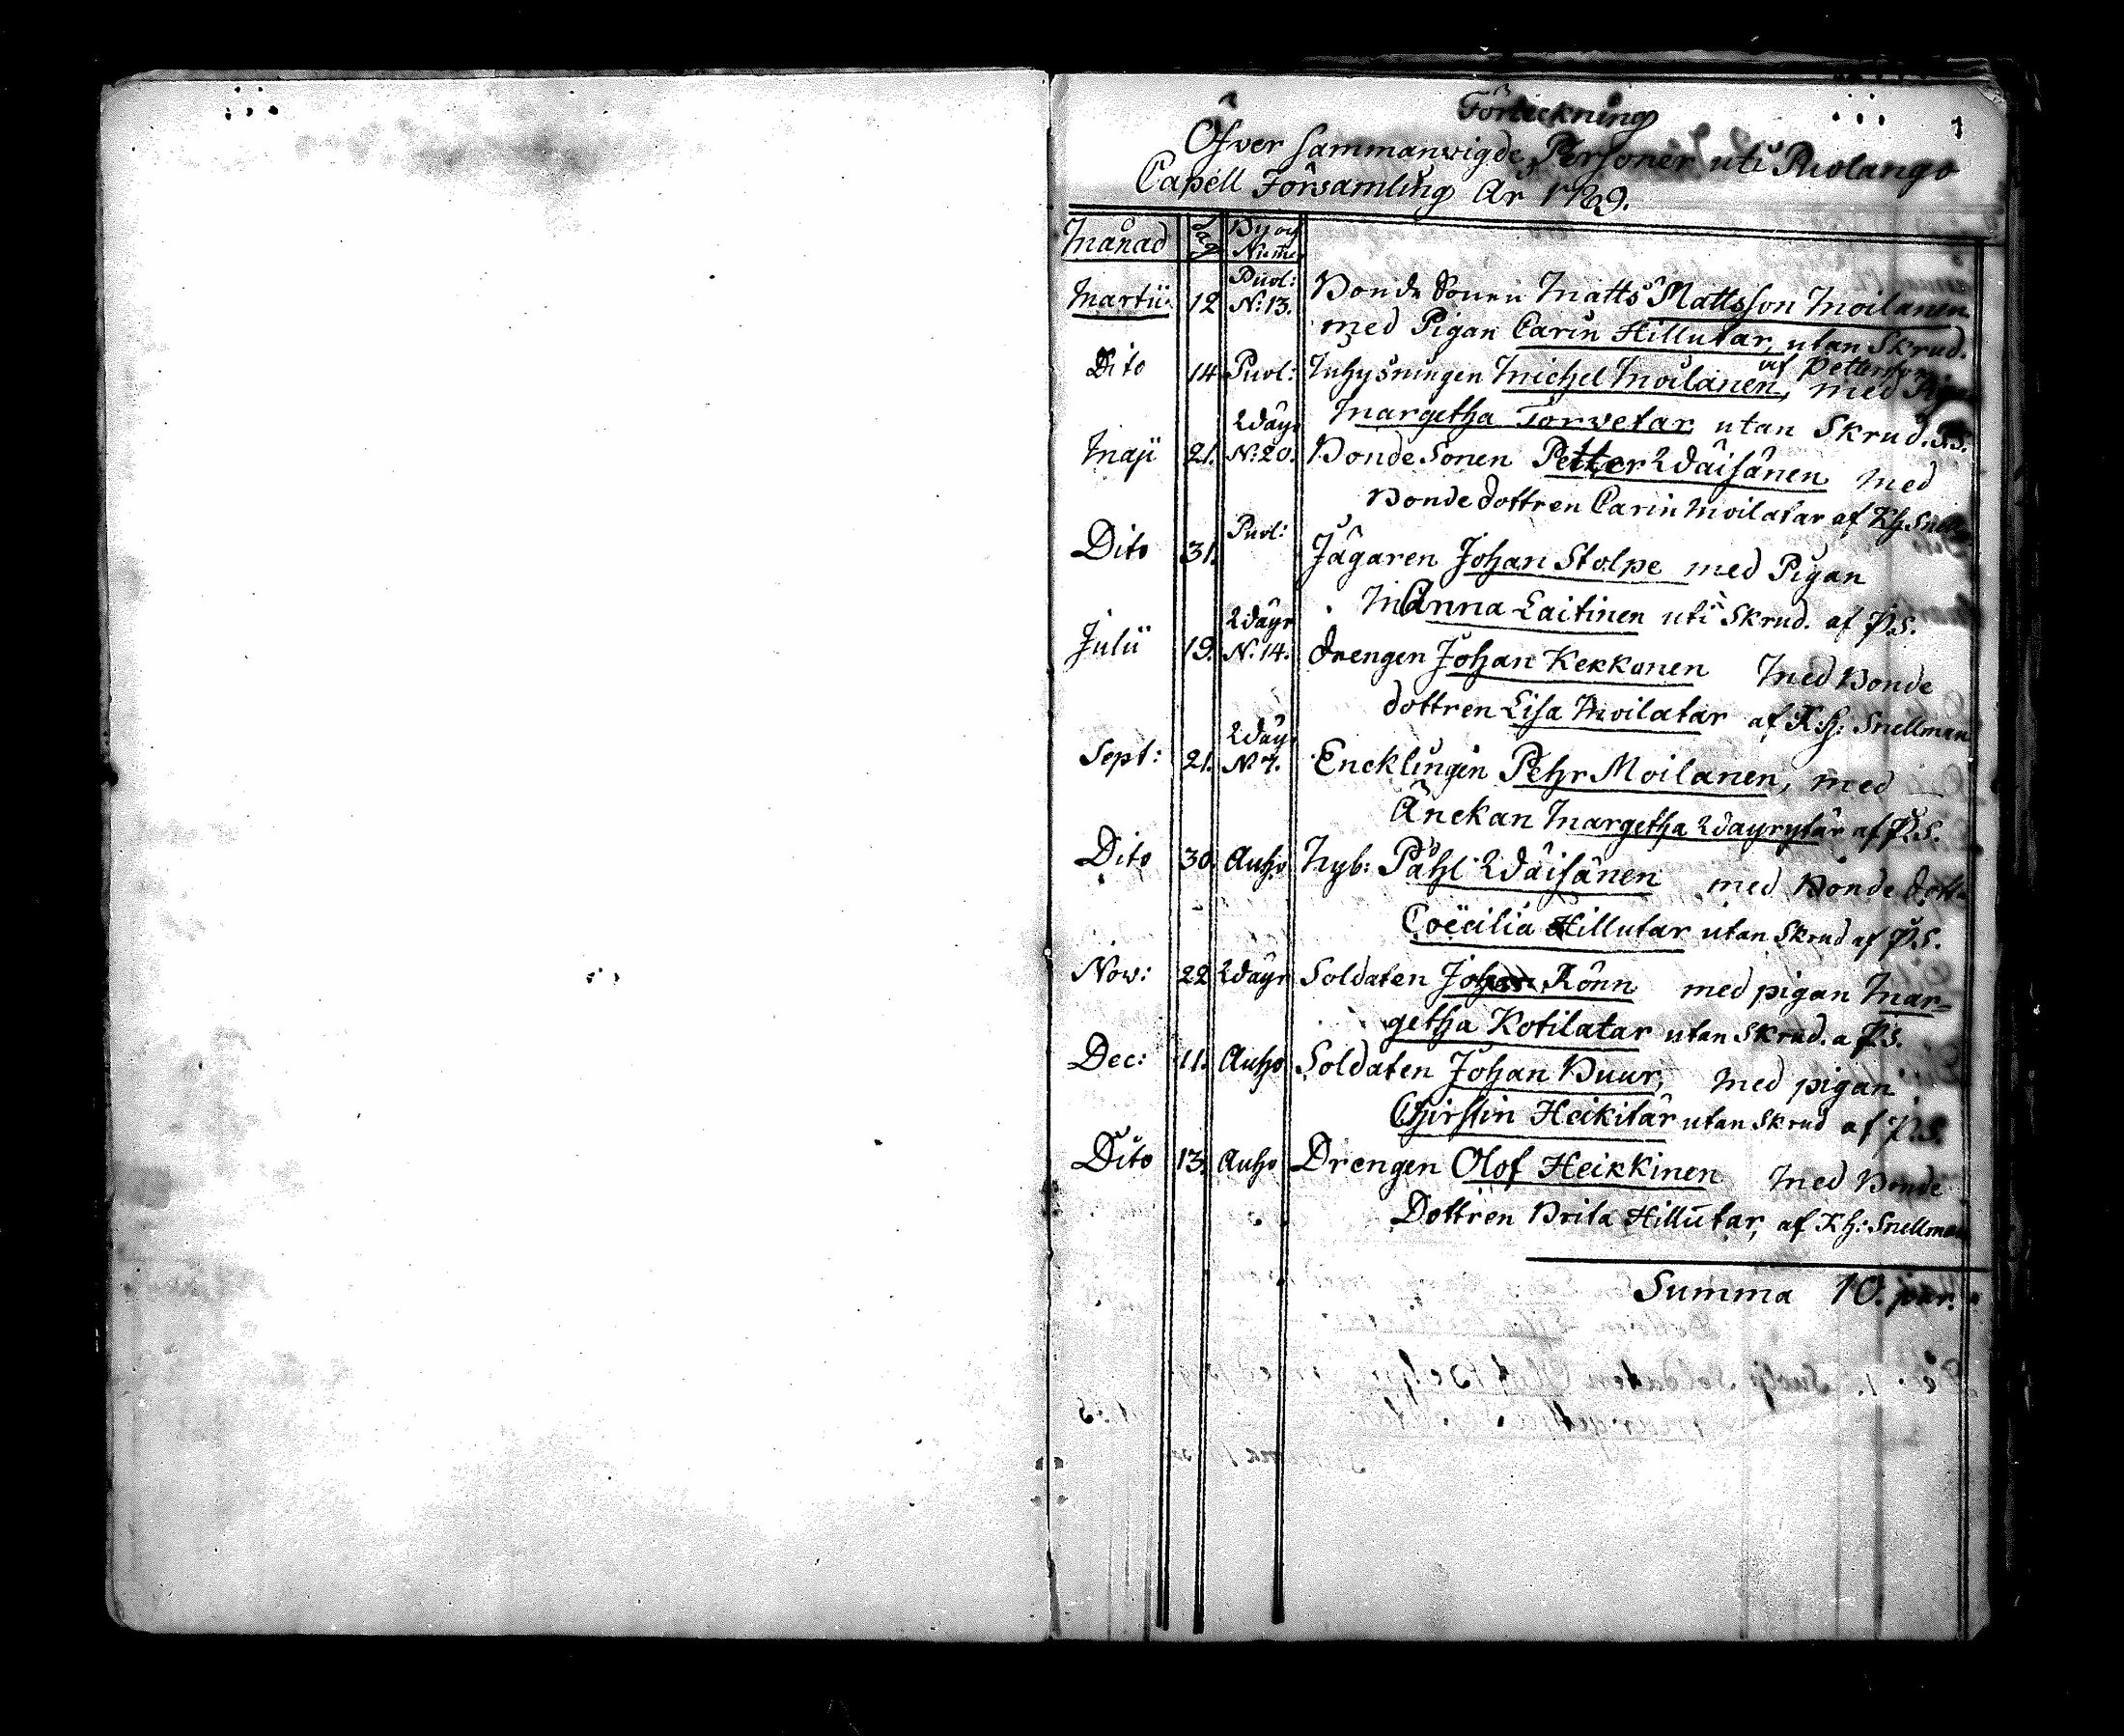 Förteckning 1
Öfver Sammanwigde Personer uti Puolango
Capell Församling År 1789.
Månad Dag By och Num:
Martii 12 Puol: N:13. Bonde Sonen Matts Mattsson Moilanen
med Pigan Carin Hillutar, utan Skrud.
af Petterson
Dito 14 Puol: Inhysningen Michel Moilanen, med Pigan
Margetha Torvetar utan Skrud. P.S.
Maji 21. Wäyr N:20. Bonde Sonen Petter Wäisänen med
Bonde dottren Carin Moilatar af Kh Snellm
Dito 31. Puol: Jägaren Johan Stolpe med Pigan
Anna Laitinen uti Skrud. af P.S.
Julii 19. Wäyr N:14. Drengen Johan Kekkonen med Bonde
dottren Lisa Moilatar af K:h: Snellman
Sept: 21. Wäyr N 7. Encklingen Pehr Moilanen, med
Änckan Margetha Wäyrytär af P.S.
Dito 30. Auho Nyb: Påhl Wäisänen med Bonde dott-
Coecilia Hillutar utan Skrud af P.S.
Now: 22 Wäyr Soldaten Johan Rönn med pigan Mar-
getha Kotilatar utan Skrud. a P.S.
Dec: 11. Auho Soldaten Johan Buur, med pigan
Chirstin Heikitär utan Skrud af P.S.
Dito 13. Auho Drengen Olof Heikkinen med Bonde
Dottren Brita Hillutar, af Kh: Snellman
Summa 10. par.